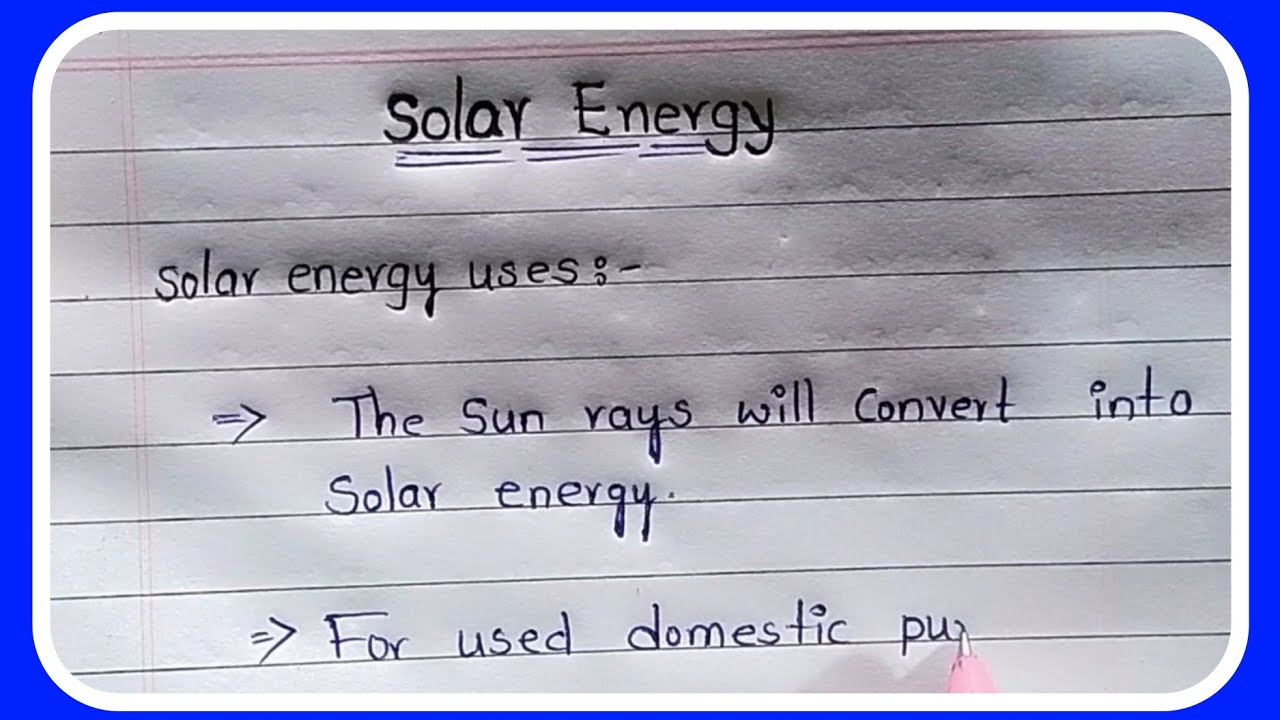 Solar Energy
solar energy uses:-
=> The Sun rays will convert into
Solar energy.
=> For used domestic